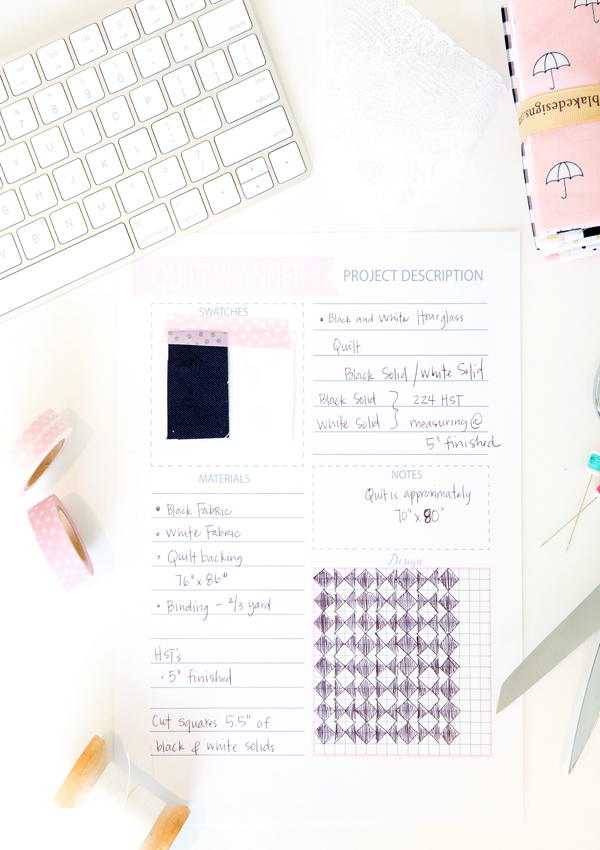 delete
return
shift
command
option
7
8
9
0
Y
U
I
O
P
G
H
J
K
L
B
N
M
blakedesigns.com
QUILT PLANNER
PROJECT DESCRIPTION
SWATCHES
• Black and White Hourglass
Quilt
Black Solid / White Solid
Black Solid } 224 HST
White Solid } measuring @
5" finished
MATERIALS
• Black Fabric
• White Fabric
• Quilt backing
76" x 86"
• Binding - 2/3 yard
HST's
• 5" finished
Cut squares 5.5" of
black & white solids
NOTES
Quit is approximately
70" x 80"
Design